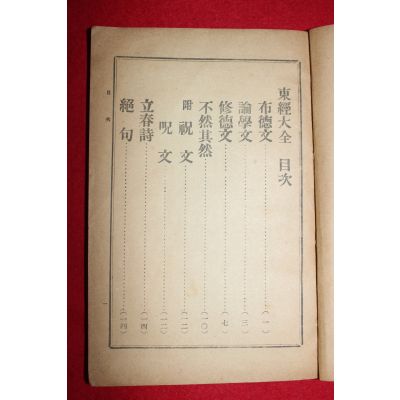 東經大全 目次
布德文 (一)
論學文 (三)
修德文 (七)
不然其然 (一〇)
附 祝文 (一二)
呪文 (一二)
立春詩 (一四)
絕句 (一四)
目次
一